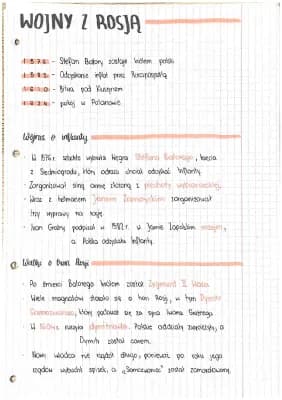 WOJNY Z ROSJĄ
1576 - Stefan Batory zostaje królem polski
1582 - Odzyskanie inflant przez Rzeczpospolitą
1610 - Bitwa pod Kuszynem
1634 - pokój w Polanowie
Wojna o inflanty
· W 1576r. szlachta wybrała Stefana Batorego, księcia
z Siedmiogrodu, który chciał odzyskać Inflanty.
· Zorganizował silną armię złożoną z piechoty wybranieckiej.
· Wraz z hetmanem Janem Zamoyskim zorganizował
trzy wyprawy na
· Iwan Groźny podpisał w 1582r. w Jamie Zapolskim rozejm,
a Polska odzyskała Inflanty.
Walki o tron Rosji
· Po śmierci Batorego królem został Zygmunt III Waza.
Wiele magnatów starało się o tron Rosji, w tym Dymitr
Samozwaniec, który podawał się za syna Iwana Groźnego.
· W 1604r. ruszyła dymitriada. Polskie oddziały zwyciężyły, a
Dymitr został carem.
· Nowy władca nie rządził długo, ponieważ po roku jego
rządów wybuchł spisek, a „Samozwaniec" został zamordowany.